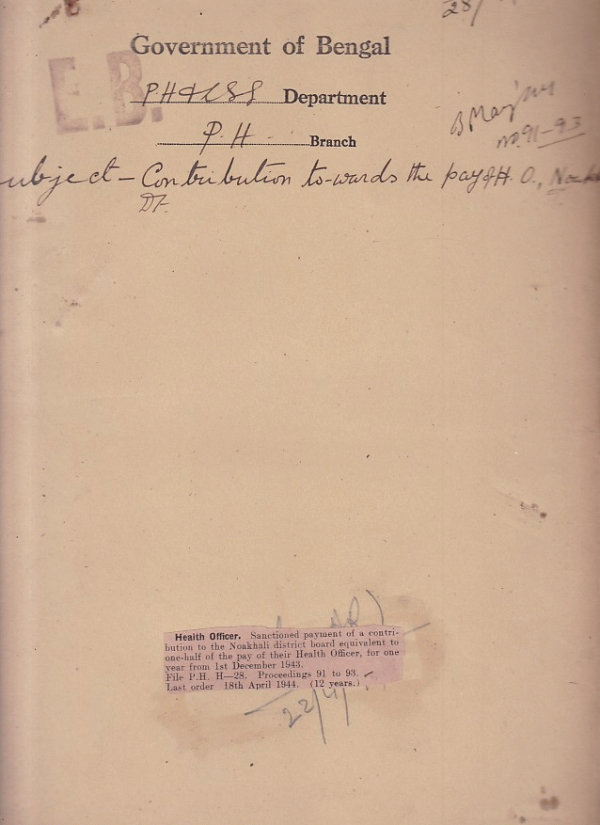 28/
Government of Bengal
E.B.
P.H & LSG Department
P.H Branch
B May
no. 91-93
Subject - Contribution to-wards the pay of H. O.,
Dt.
Health Officer. Sanctioned payment of a contri-
bution to the Noakhali district board equivalent to
one-half of the pay of their Health Officer, for one
year from 1st December 1943.
File P.H. H—28. Proceedings 91 to 93.
Last order 18th April 1944. (12 years.)
22/4/